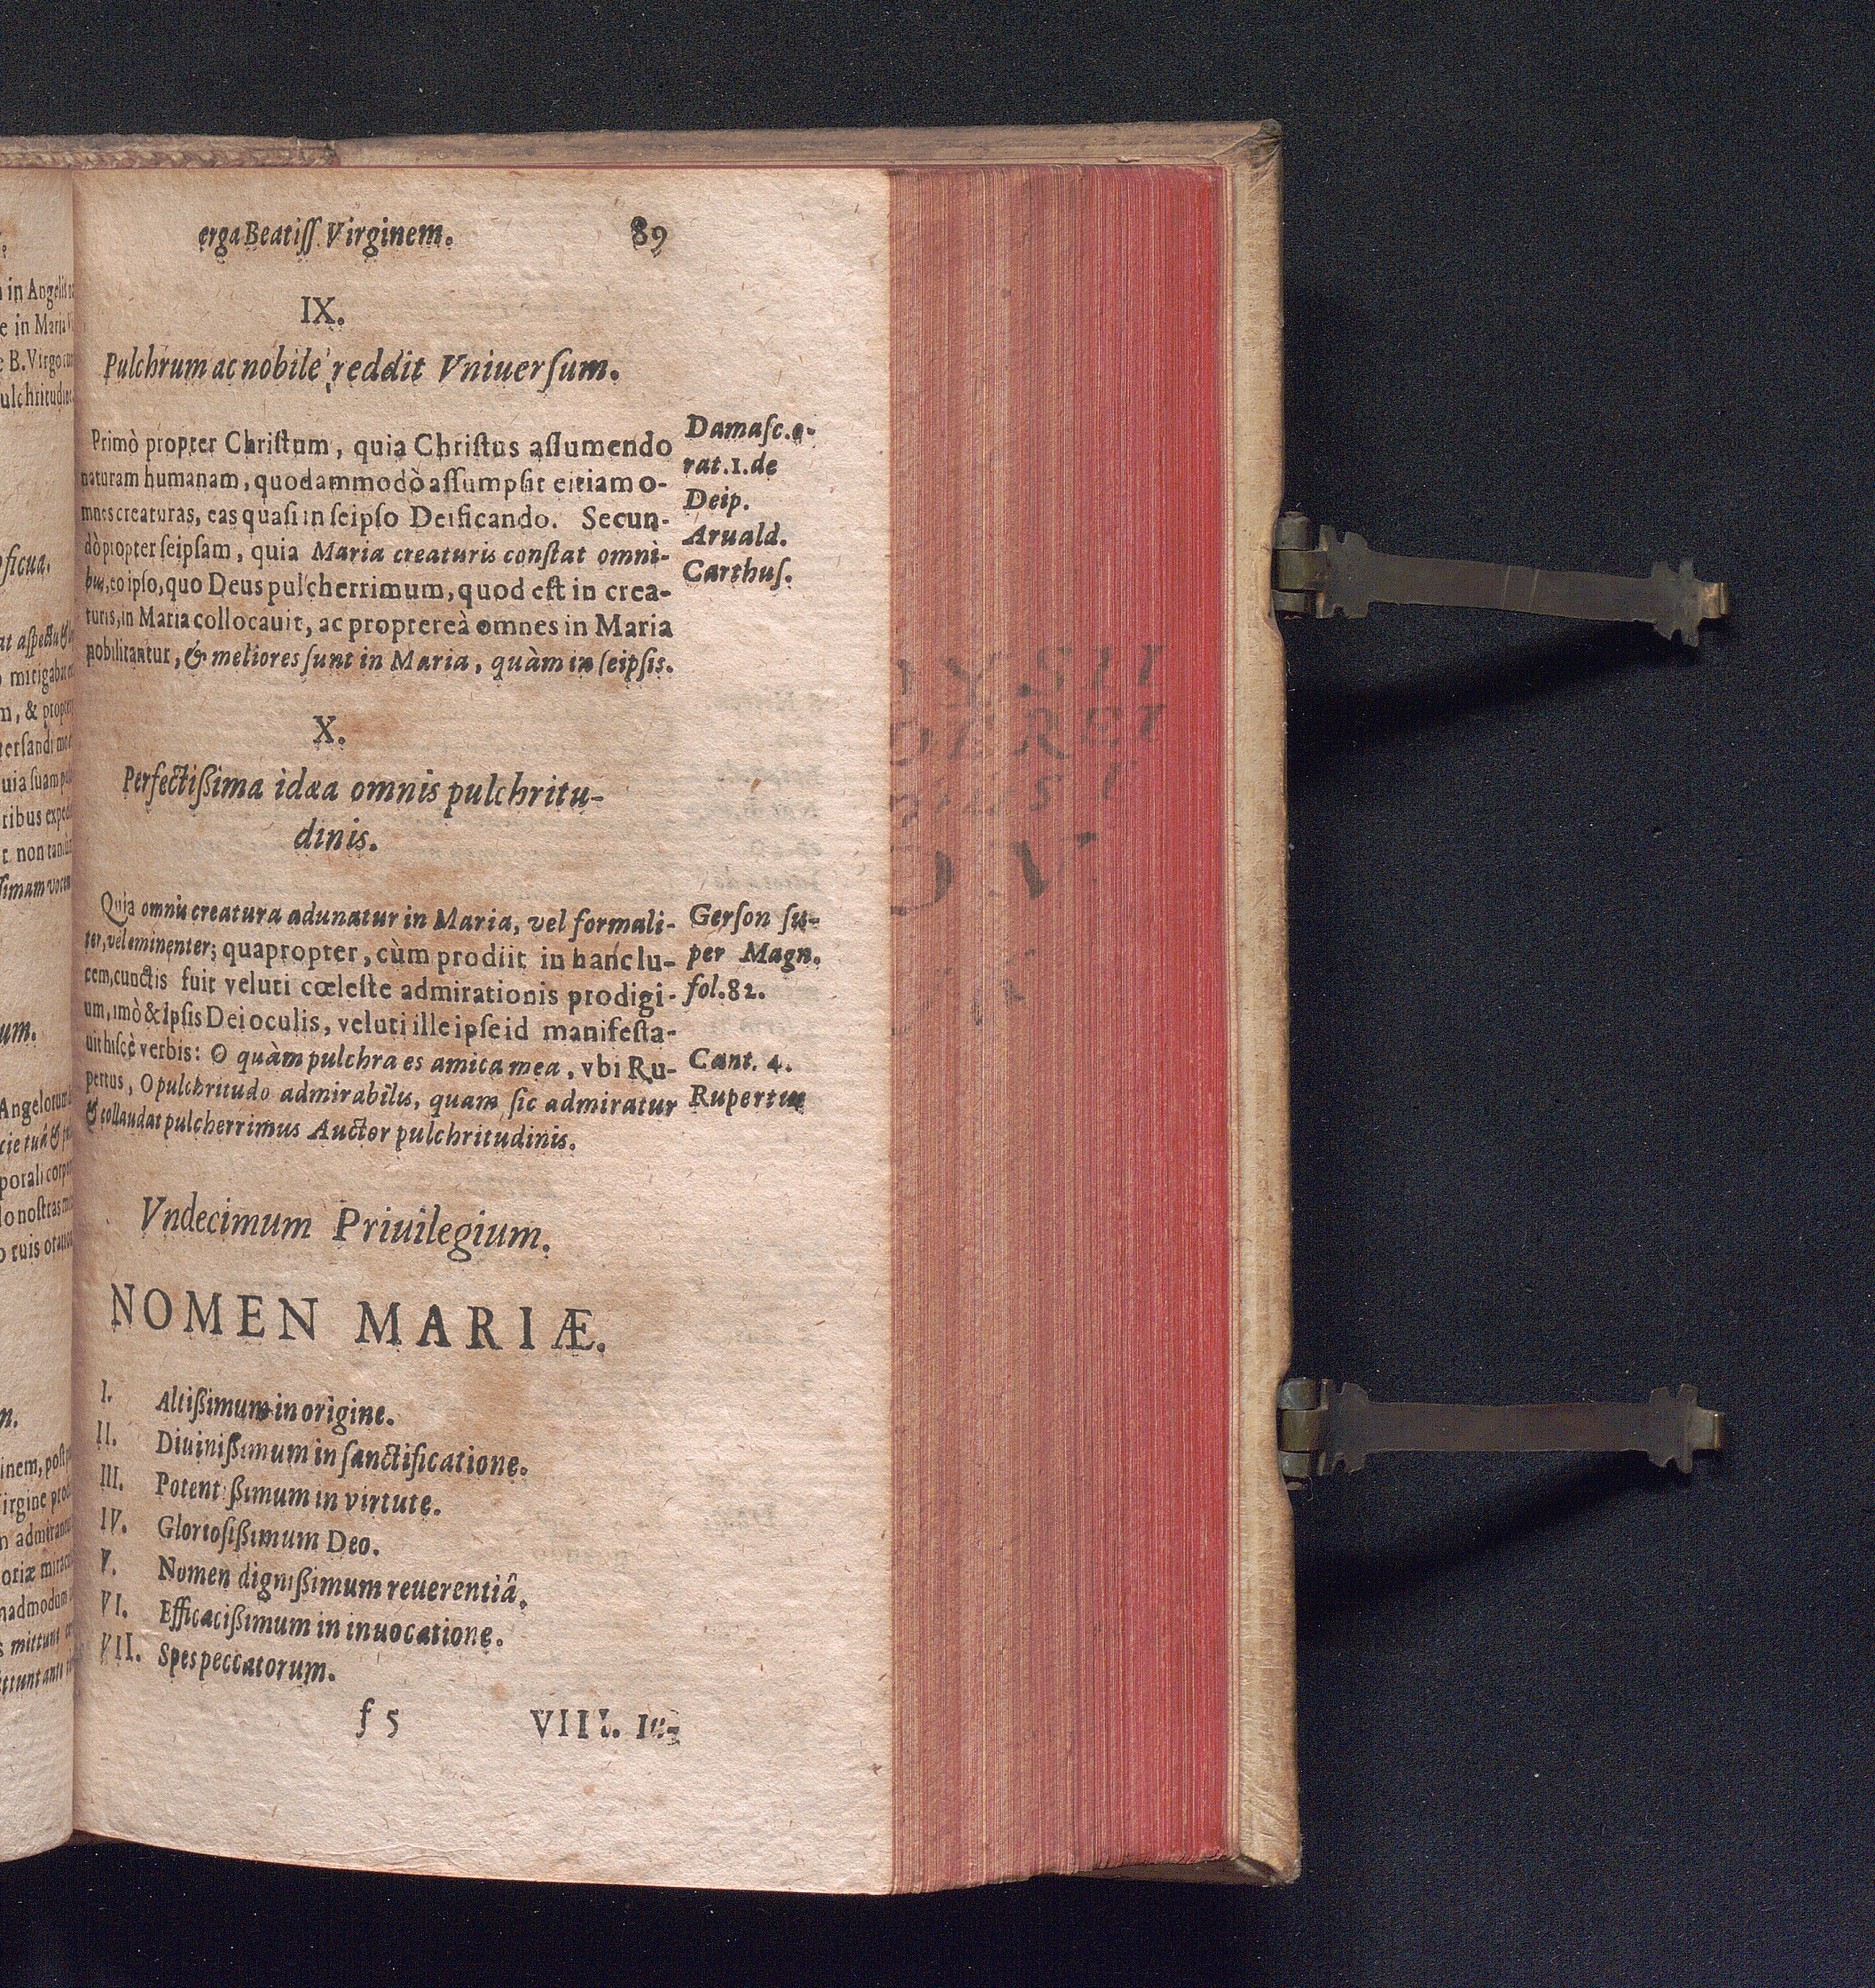 erga Beatiſſ. Virginem. 89
IX.
Pulchrum ac nobile reddit Vniuerſum.
Primò propter Chriſtum, quia Chriſtus aſſumendo
naturam humanam, quodammodò aſſumpſit eitiam o-
mnes creaturas, eas quaſi in ſeipſo Deificando. Secun-
dò propter ſeipſam, quia Maria creaturis conſtat omni-
bus, eo ipſo, quo Deus pulcherrimum, quod eſt in crea-
turis, in Maria collocauit, ac proptereà omnes in Maria
nobilitantur, & meliores ſunt in Maria, quàm in ſeipſis.
Damaſc. o-
rat. 1. de
Deip.
Aruald.
Carthuſ.
X.
Perfectißima idæa omnis pulchritu-
dinis.
Quia omnis creatura adunatur in Maria, vel formali-
ter, vel eminenter; quapropter, cùm prodiit in hanc lu-
cem, cunctis fuit veluti cœleſte admirationis prodigi-
um, imò & Ipſis Dei oculis, veluti ille ipſe id manifeſta-
uit hiſcè verbis: O quàm pulchra es amica mea, vbi Ru-
pertus, O pulchritudo admirabilis, quam ſic admiratur
& collaudat pulcherrimus Auctor pulchritudinis.
Gerſon ſu-
per Magn.
fol. 82.
Cant. 4.
Rupertus
Vndecimum Priuilegium.
NOMEN MARIÆ.
I. Altißimum in origine.
II. Diuinißimum in ſanctificatione.
III. Potentißimum in virtute.
IV. Glorioſißimum Deo.
V. Nomen dignißimum reuerentiâ.
VI. Efficacißimum in inuocatione.
VII. Spes peccatorum.
f 5 VIII. Iu-